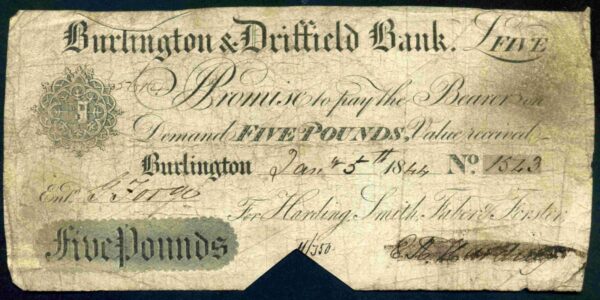 Burlington & Driffield Bank. £FIVE
I Promise to pay the Bearer on
Demand FIVE POUNDS, Value received
Burlington Jany 5th 1844 No. 1543
Entd
For Harding, Smith, Faber & Forster,
Five Pounds